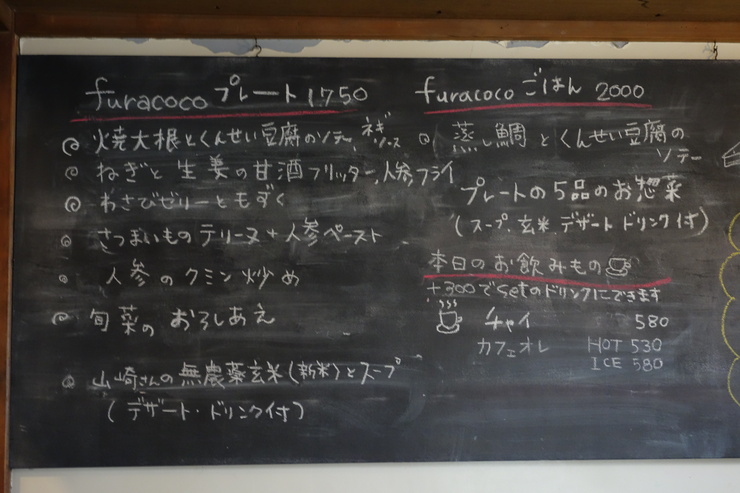 furacoco プレート 1750
火焼大根とくんせい豆腐のソテー、ネギソース
ねぎと生姜の甘酒フリッター、人参フライ
わさびゼリーともずく
さつまいものテリーヌ+人参ペースト
人参のクミン炒め
旬菜のおろしあえ
山崎さんの無農薬玄米(新米)とスープ
(デザート・ドリンク付)
furacoco ごはん 2000
蒸し鯛とくんせい豆腐の
ソテー
プレートの5品のお惣菜
(スープ、玄米、デザートドリンク付)
本日のお飲みもの
+300でsetのドリンクにできます
チャイ 580
カフェオレ HOT 530
ICE 580